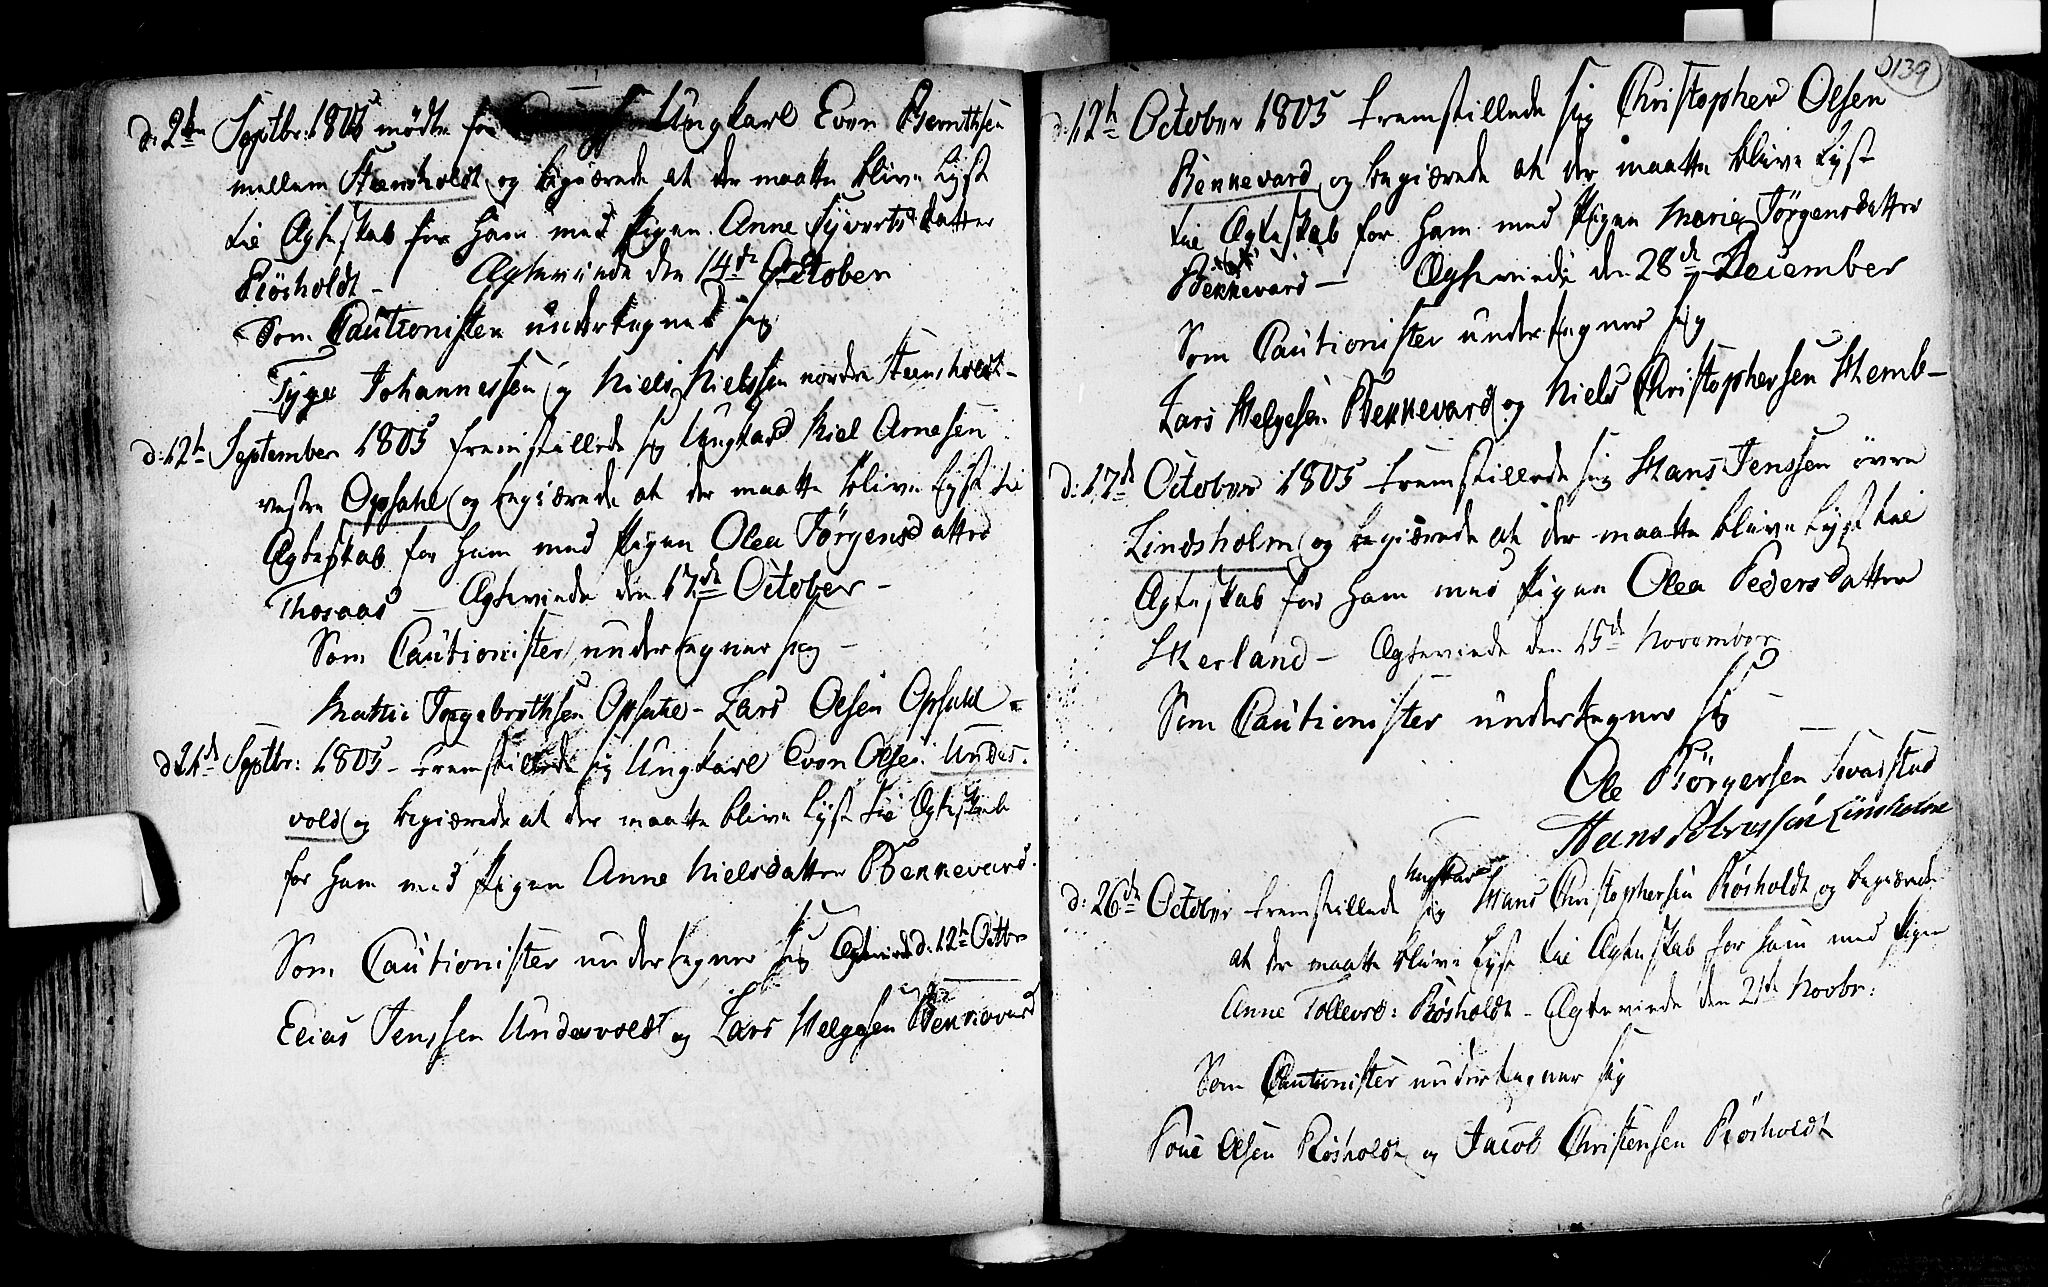 d: 2den Septbr: 1805 mödte for Ungkarl Even Berntsen
mellem Steensholdt og begiærede at der maatte blive lyst
til Ægteskab for ham med Pigen Anne Syvertsdatter
Rösholdt – Ægteviede den 14de October
Som Cautionister undertegner sig
Tyge Johannessen og Niels Nielssen nordre Steensholdt –
d: 12te September 1805 fremstillede sig Ungkarl Kiel Arnesen
vestre Opsahl og begiærede at der maatte blive lyst til
Ægteskab for ham med Pigen Olea Jörgensdatter
Thosaas – Ægteviede den 17de October –
Som Cautionister undertegner sig –
Mathis Ingebrethsen Opsahl – Lars Olsen Opsahl –
d: 21de Septbr: 1805 – fremstillede sig Ungkarl Even Olsen Undes-
vold og begiærede at der maatte blive lyst til Ægteskab
for ham med Pigen Anne Nielsdatter Bekkevard
Som Cautionister undertegner sig Ægteviede d: 12te Octbr
Elias Jenssen Undesvoldt og Lars Helgesen Bekkevard
139
d: 12te October 1805 fremstillede sig Christopher Olsen
Bekkevard og begiærede at der maatte blive lyst
til Ægteskab for ham med Pigen Marie Jörgensdatter
Bekkevard – Ægteviede den 28de December
Som Cautionister undertegner sig
Lars Helgesen Bekkevard og Niels Christophersen Hemb –
d: 17de October 1805 fremstillede sig Hans Jenssen övre
Lindsholm og begiærede at der maatte blive lyst til
Ægteskab for ham med Pigen Olea Pedersdatter
Herland – Ægteviede den 15de November
Som Cautionister undertegner sig –
Ole Börgersen
Hans Linsholm
Ungkarl
d: 26de October fremstillede sig Hans Christophersen Rösholdt og begiærede
at der maatte blive lyst til Ægteskab for ham med Pigen
Anne Tollevsd: Rösholdt – Ægteviede den 21de Novbr:
Som Cautionister undertegner sig
Poul Olsen Rösholdt og Jacob Christensen Rösholdt